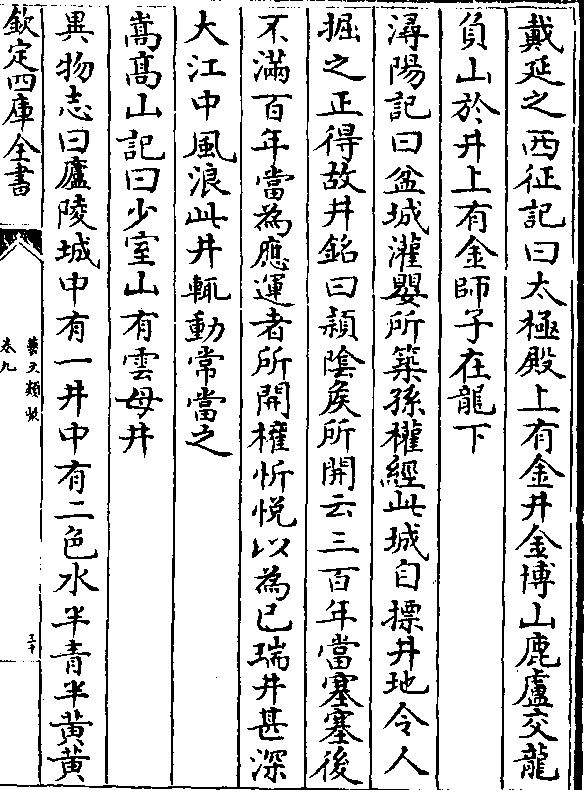 戴延之西征記曰太極殿上有金井金博山鹿盧交龍
負山於井上有金師子在龍下
潯陽記曰盆城灌嬰所築孫權經此城自摽井地令人
掘之正得故井銘曰潁隂侯所開云三百年當塞塞後
不滿百年當為應運者所開權忻悅以為己瑞井甚深
大江中風浪此井輒動常當之
嵩髙山記曰少室山有雲母井
異物志曰廬陵城中有一井中有二色水半青半黄黄
欽定四庫全書
藝文類聚
卷九
三十